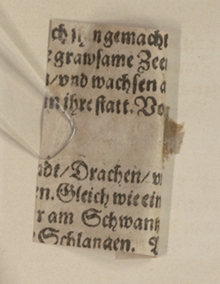 ch ihn gemacht
grawsame Zee
/ vnd wachsen a
n ihre statt. Vo
adt / Drachen / v
en. Gleich wie ein
r am Schwantz
Schlangen.